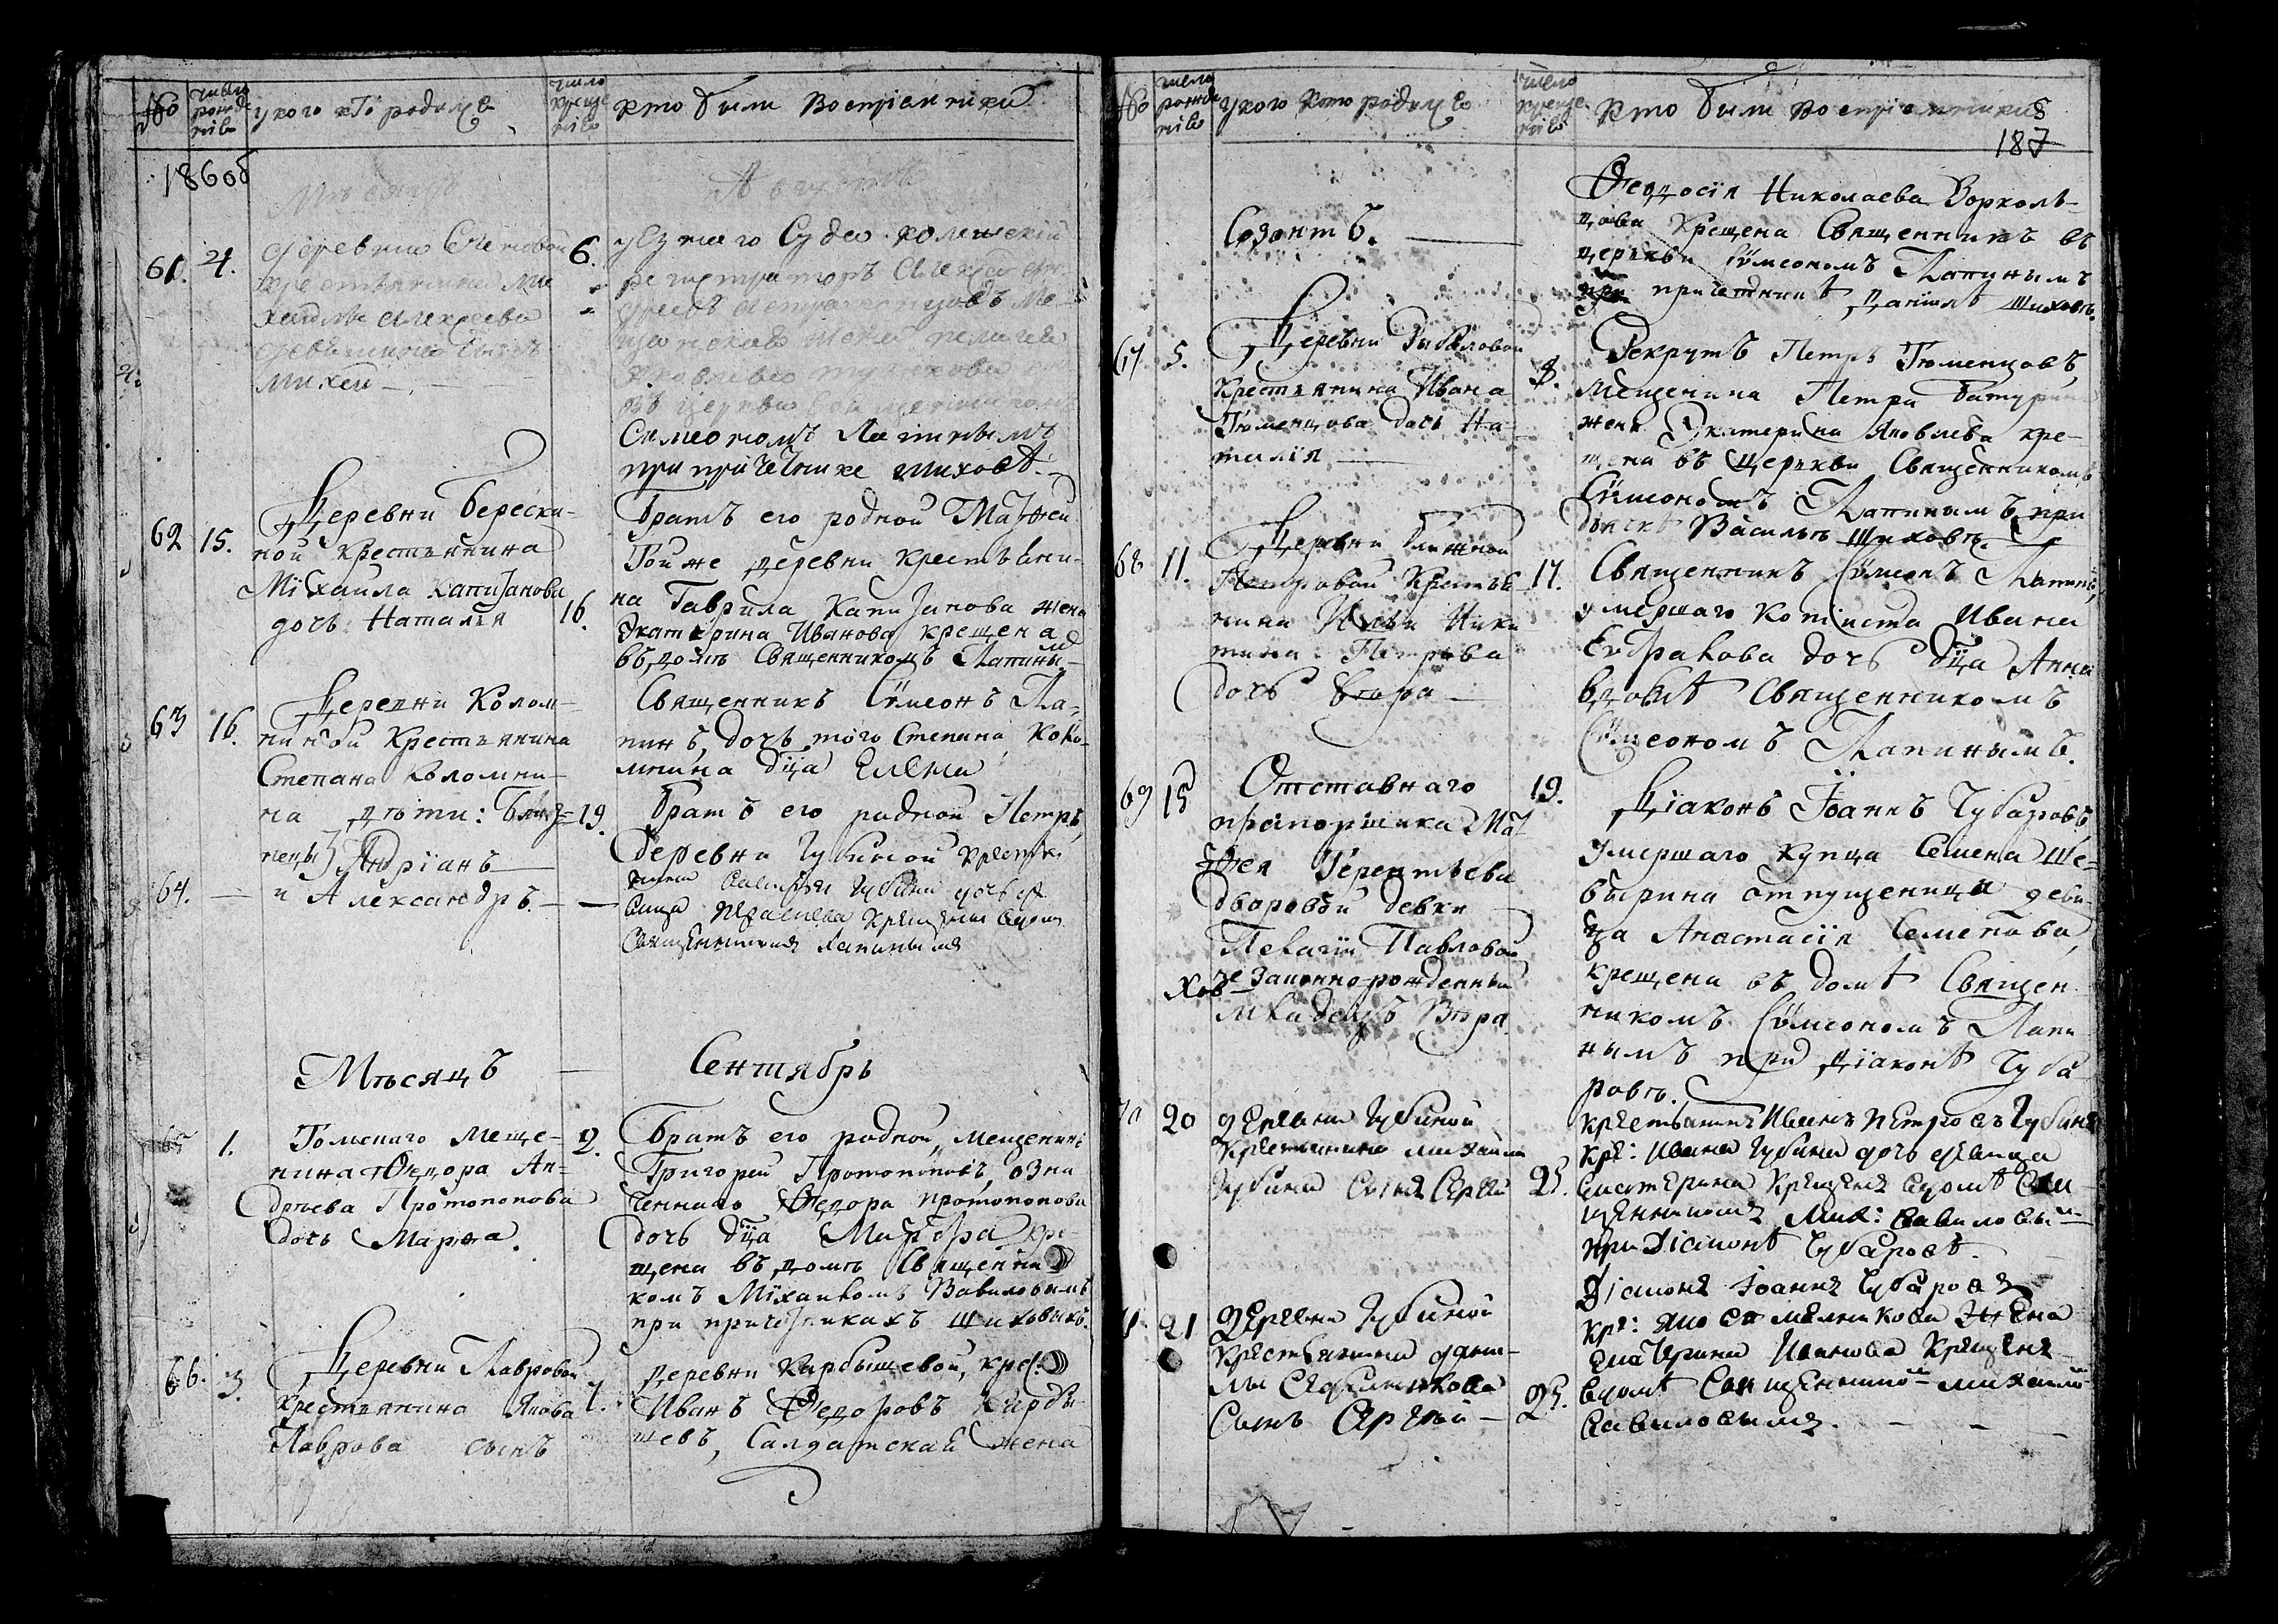 №
число рожденiѣ
у кого кто родился
число крещенiѣ
кто были воспрiемники
186 об
Мѣсяцъ
Августъ
61. 4.
деревни
крестьянина Ми-
хайла Алексеева
сынъ
Михей —
6.
уезнаго Суда колежский
регистраторъ Алексей
Яковлева
въ церкви священникомъ
Симеономъ Лапинымъ
при причетнике Шиховѣ.
62 15.
Деревни Берески-
ной крестьянина
Мiхаила Капитанова
дочь Наталiя
16.
Братъ его родной Матѳей
Той же деревни крестьяни-
на Гаврила Капитанова жена
Екатерина Иванова крещена
въ домѣ Священникомъ Лапины-
63 16.
Деревни Колом-
ниной Крестьянина
Степана Коломни-
на дѣти: Близ-
нецы} Андрiанъ —
64. —
и Александръ. —
Священникъ Сѵмеонъ Ла-
пинъ, дочь того Степана Коло-
мнина дѣца Елена
19.
Братъ его родной Петръ,
деревни Губиной крестья-
нина Губина дочь де-
вица крещены
Священникомъ Лапинымъ
Мѣсяцъ — Сентябрь
65 1.
Томскаго Меще-
нина Ѳедора Ан-
дрѣева Протопопова
дочь Марѳа.
2.
Братъ его родной, мещенинъ
Григорей Протопоповъ, озна
ченнаго Ѳедора Протопопова
дочь дѣца кре-
щена въ домѣ Священни
комъ Мiхаиломъ Вавиловымъ
при причетникахъ Шиховыхъ.
66. 3.
Деревни Лавровой
крестьянина Якова
Лаврова сынъ
7.
Деревни Карбышевой, крес:
Иванъ Ѳедоровъ Карбы-
шевъ, Салдатскай жена
№
число рожденiѣ
у кого кто родился
число крещенiѣ
кто были воспрiемники
187
Созонтъ. —
Ѳеодосiя Николаева Ворколь-
цова Крещена Священникъ въ
церкви Сѵмеономъ Лапинымъ
при причетникѣ Данiилѣ Шиховѣ.
67. 5.
Деревни Рыбаловой
крестьянина Ивана
Тюменцова дочь На-
талiя —
8.
Рекрутъ Петръ Тюменцовъ,
мещенина Петра Батурина
жена Екатерина Яковлева кре-
щена въ церкви Священникомъ
Сѵмеономъ Лапинымъ, при
дьячкѣ Василiѣ Шиховѣ. —
68 11.
Деревни
Петровой Крестья-
нина Ильи Ники
тина Петрова
дочь Вѣра —
17.
Священникъ Сѵмеонъ Лапинъ,
умершаго Копiиста Ивана
дочь дѣца Анна
въ домѣ Священникомъ
Сѵмеономъ Лапинымъ.
69 15
Отставнаго
прапорщика Мат
ѳея Терентьева
дворовой девки
Пелагiи Павловой
незаконнорожденный
младенецъ Вѣра
19.
Дiаконъ Iоаннъ Чубаровъ,
умершаго купца Семена Ше-
вырина отпущеница деви-
ца Анастасiя Семенова,
крещена въ домѣ Священ-
никомъ Сѵмеономъ Лапи
нымъ при дiаконѣ Чуба
ровѣ.
70 20
деревни Губиной
крестьянина михаила
Губина Сынъ Сергей
25.
крестьянинъ Иванъ Петровъ Губинъ
кре: Ивана Губина дочь девица
Екатерина крещенъ вдомѣ Свя
щенникомъ Мих: Вавиловы м
при дiаконѣ Чубаровѣ.
71 21
деревни Губиной
крестьянина дани-
лы
Сынъ Сергѣй —
25.
Дiаконъ Iоаннъ Чубаровъ
кре: Якова Мелникова Жена
Екатерина Иванова крещенъ
вдомѣ Священнико м михаило м
Вавиловымъ. — — —